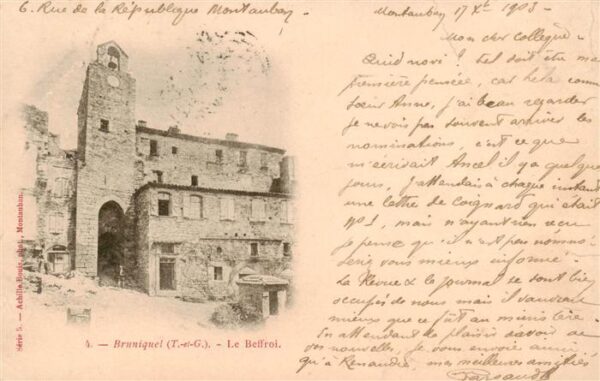 6. Rue de la République Montauban
Montauban 17 Xbre 1903 -
Mon cher Collègue -
Quid novi! tel doit être ma
première pensée, car hélas comme
Sœur Anne, j'ai beau regarder
je ne vois pas souvent arriver les
nominations, c'est ce que
m'écrivait Ancel il y a quelque
jours, J'attendais à chaque instant
une lettre de Coignard qui était
No 1, mais n'ayant rien reçu
je pense qu'il n'est pas nommé.
Seriez vous mieux informé.
La Revue & le Journal se sont bien
occupés de nous mais il vaudrait
mieux que ce fût au ministère.
En attendant le plaisir d'avoir de
vos nouvelles, je vous envoie ainsi
qu'à meilleures amitiés
Série 5. — Achille Bouis, phot., Montauban.
4. — Bruniquel (T.-et-G.). - Le Beffroi.